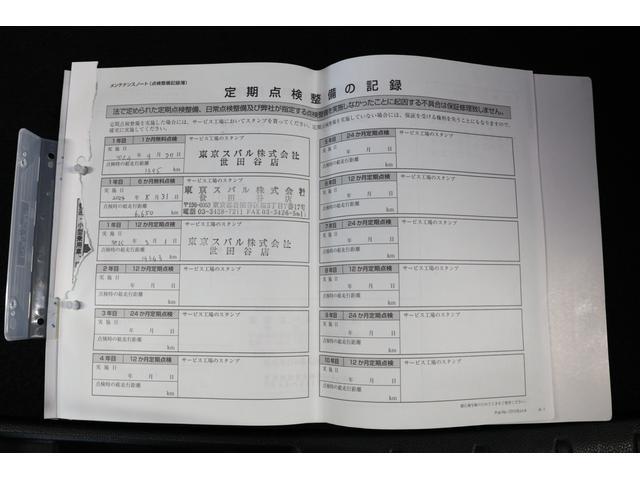 メンテナンスノート（点検整備記録簿）
定期点検整備の記録
法で定められた定期点検整備、日常点検整備及び弊社が指定する点検整備を実施しなかったことに起因する不具合は保証修理致しません。
定期点検整備を実施した場合には、サービス工場においてスタンプを貰ってください。定期点検整備を実施していない場合には、保証を受ける権利を失うことにもなりますので、
確実に実施してください。
1年目 1か月無料点検 サービス工場のスタンプ
実施日
年 月 日
東京スバル株式会社
世田谷店
点検時の総走行距離
km
1年目 6か月無料点検 サービス工場のスタンプ
実施日
2024年 8月 31日
東京スバル株式会社
世田谷店
電話 03-3428-7211
点検時の総走行距離
6,650 km
1年目 12か月定期点検 サービス工場のスタンプ
実施日
年 3月 1日
東京スバル株式会社
世田谷店
点検時の総走行距離
km
2年目 12か月定期点検 サービス工場のスタンプ
実施日
年 月 日
点検時の総走行距離
km
3年目 24か月定期点検 サービス工場のスタンプ
実施日
年 月 日
点検時の総走行距離
km
4年目 12か月定期点検 サービス工場のスタンプ
実施日
年 月 日
点検時の総走行距離
km
5年目 24か月定期点検 サービス工場のスタンプ
実施日
年 月 日
点検時の総走行距離
km
6年目 12か月定期点検 サービス工場のスタンプ
実施日
年 月 日
点検時の総走行距離
km
7年目 24か月定期点検 サービス工場のスタンプ
実施日
年 月 日
点検時の総走行距離
km
8年目 12か月定期点検 サービス工場のスタンプ
実施日
年 月 日
点検時の総走行距離
km
9年目 24か月定期点検 サービス工場のスタンプ
実施日
年 月 日
点検時の総走行距離
km
10年目 12か月定期点検 サービス工場のスタンプ
実施日
年 月 日
点検時の総走行距離
km